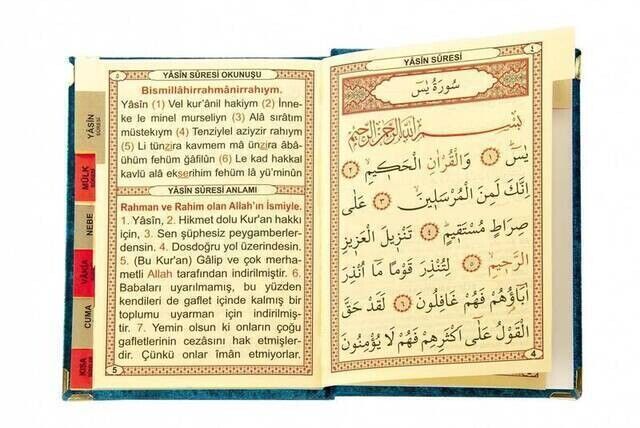 ٤
YÂSÎN SÛRESİ
سُورَةُ يٰسۤ
بِسْمِ اللّٰهِ الرَّحْمٰنِ الرَّحِيمِ
يٰسۤ ﴿١﴾ وَالْقُرْاٰنِ الْحَكِيمِ ﴿٢﴾
اِنَّكَ لَمِنَ الْمُرْسَلِينَ ﴿٣﴾ عَلٰى
صِرَاطٍ مُسْتَقِيمٍ ﴿٤﴾ تَنْزِيلَ الْعَزِيزِ
الرَّحِيمِ ﴿٥﴾ لِتُنْذِرَ قَوْمًا مَٓا اُنْذِرَ
اٰبَٓاؤُهُمْ فَهُمْ غَافِلُونَ ﴿٦﴾ لَقَدْ حَقَّ
الْقَوْلُ عَلٰٓى اَكْثَرِهِمْ فَهُمْ لَا يُؤْمِنُونَ
4
٥
YÂSİN SÛRESİ OKUNUŞU
Bismillâhirrahmânirrahıym.
Yâsîn (1) Vel kur'ânil hakiym (2) İnne-
ke le minel murseliyn (3) Alâ sırâtım
müstekıym (4) Tenziylel aziyzir rahıym
(5) Li tünzira kavmem mâ ünzira âbâ-
ühüm fehüm ğâfilûn (6) Le kad hakkal
kavlü alâ ekserihim fehüm lâ yü'minûn
YÂSİN SÛRESİ ANLAMI
Rahman ve Rahim olan Allah'ın İsmiyle.
1. Yâsîn, 2. Hikmet dolu Kur'an hakkı
için, 3. Sen şüphesiz peygamberler-
densin. 4. Dosdoğru yol üzerindesin.
5. (Bu Kur'an) Gâlip ve çok merha-
metli Allah tarafından indirilmiştir. 6.
Babaları uyarılmamış, bu yüzden
kendileri de gaflet içinde kalmış bir
toplumu uyarman için indirilmiş-
tir. 7. Yemin olsun ki onların çoğu
gafletlerinin cezasını hak etmişler-
dir. Çünkü onlar îmân etmiyorlar.
5
YÂSİN
SÛRESİ
MÜLK
SÛRESİ
NEBE
VÂKIA
CUMA
KISA
SÛRELER